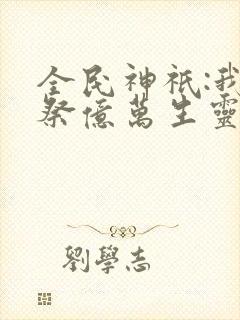 全民神祇:我
祭億萬生靈
劉學志